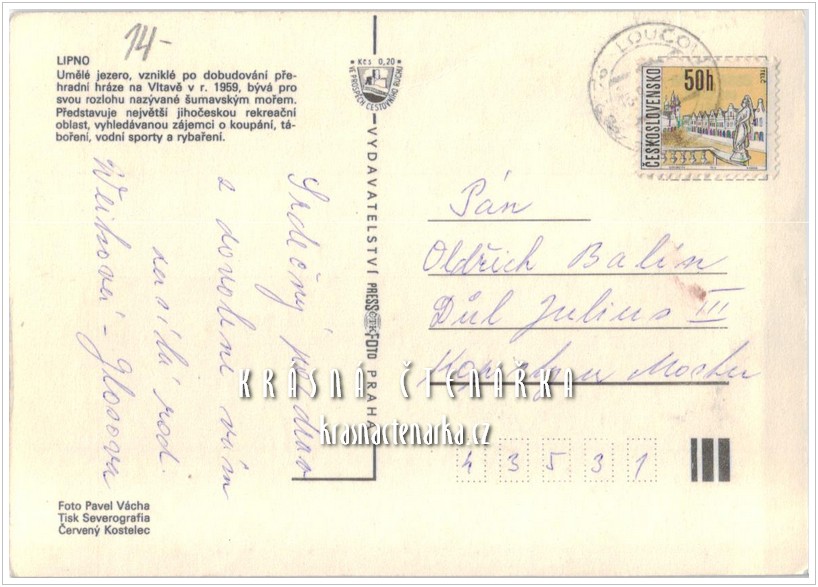 14-
LIPNO
Umělé jezero, vzniklé po dobudování pře-
hradní hráze na Vltavě v r. 1959, bývá pro
svou rozlohu nazývané šumavským mořem.
Představuje největší jihočeskou rekreační
oblast, vyhledávanou zájemci o koupání, tá-
boření, vodní sporty a rybaření.
Srdečný pozdrav
z dovolené vám
zasílá rod.
Kčs 0,20
VE PROSPĚCH CESTOVNÍHO RUCHU
VYDAVATELSTVÍ PRESSFOTO PRAHA
ČTK
ČESKOSLOVENSKO
50h
TELČ
Pán
Oldřich Balín
Důl Julius III
Kopisty u Mostu
43531
KRÁSNÁ ČTENÁRKA
krasnactenarka.cz
Foto Pavel Vácha
Tisk Severografia
Červený Kostelec